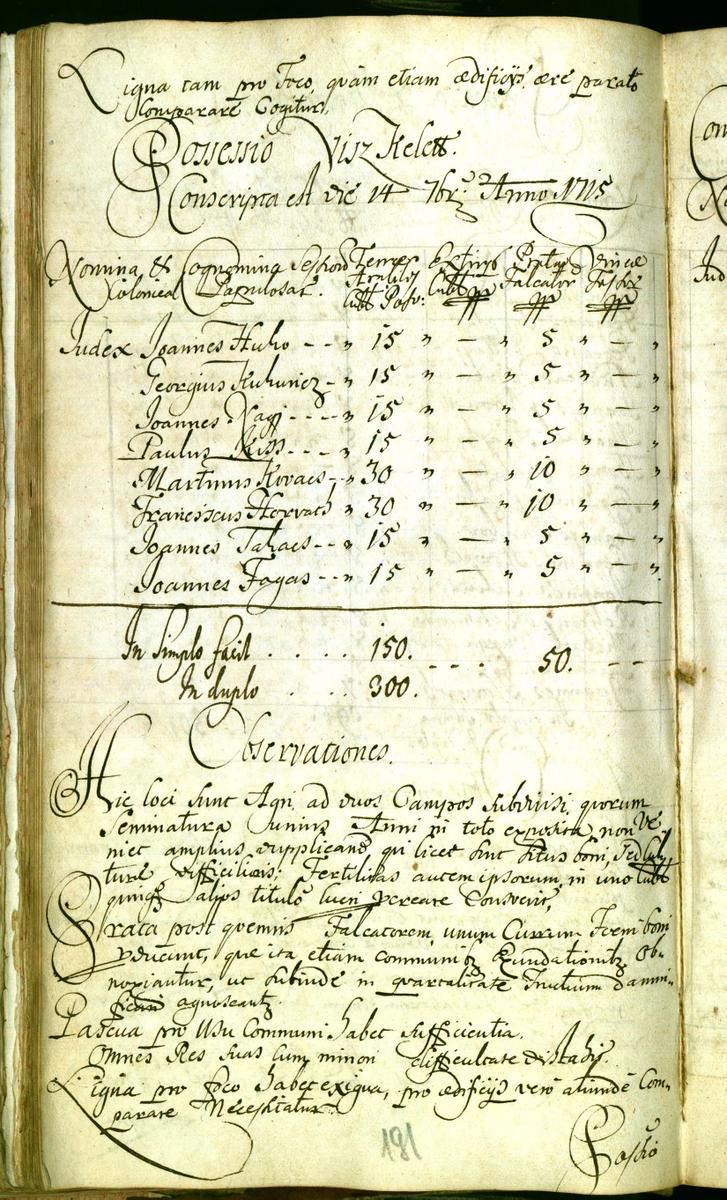 Ligna tam pro Foco, quàm etiam ædificijs, ære parato
Comparare Cogitur.
Possessio Visz Kelett.
Conscripta est die 14 7br: Anno 1715
Nomina & Cognomina Terres Extirp Prator Vineæ
Colonical Papulosat. Arabiles Cubb Falcator Fossor
Cubb Poson:
Judex Joannes Huho - - " 15 " — " 5 " — "
Georgius Kuhuricz - " 15 " — " 5 " — "
Joannes Nagj - - - - " 15 " — " 5 " — "
Paulus Kiss - - - - " 15 " — " 5 " — "
Martinus Kovacs - - " 30 " — " 10 " — "
Franciscus Horvath " 30 " — " 10 " — "
Joannes Takacs - - " 15 " — " 5 " — "
Joannes Fagas - - - " 15 " — " 5 " — "
In Simplo facit . . . . 150. - - . . 50. - -
In duplo . . . 300.
Observationes.
Hic loci sunt Agri ad duos Campos subdivisi, quorum
Seminatura Unius Anni in toto exposita non ve-
niet amplius dupplicand, qui licet sint situs boni, sed
turæ difficilioris; Fertilitas autem ipsorum in uno Cubb
quinq Alijos titulo lucri pereare Consvevit,
Prata post quemvis Falcatorem unum Currum Foeni boni
pducunt, quæ ita etiam communibq Exundationibq Ob-
noxiantur, ut subinde in quartalitate fructuum damni-
ficari agnoscantq
Pascua pro Usu Communi habet sufficientia.
Omnes Res suas cum minori difficultate distrahit.
Ligna pro foco habet exigua, pro ædificijs verò aliunde Com-
parare Necessitatur.
181
Possio